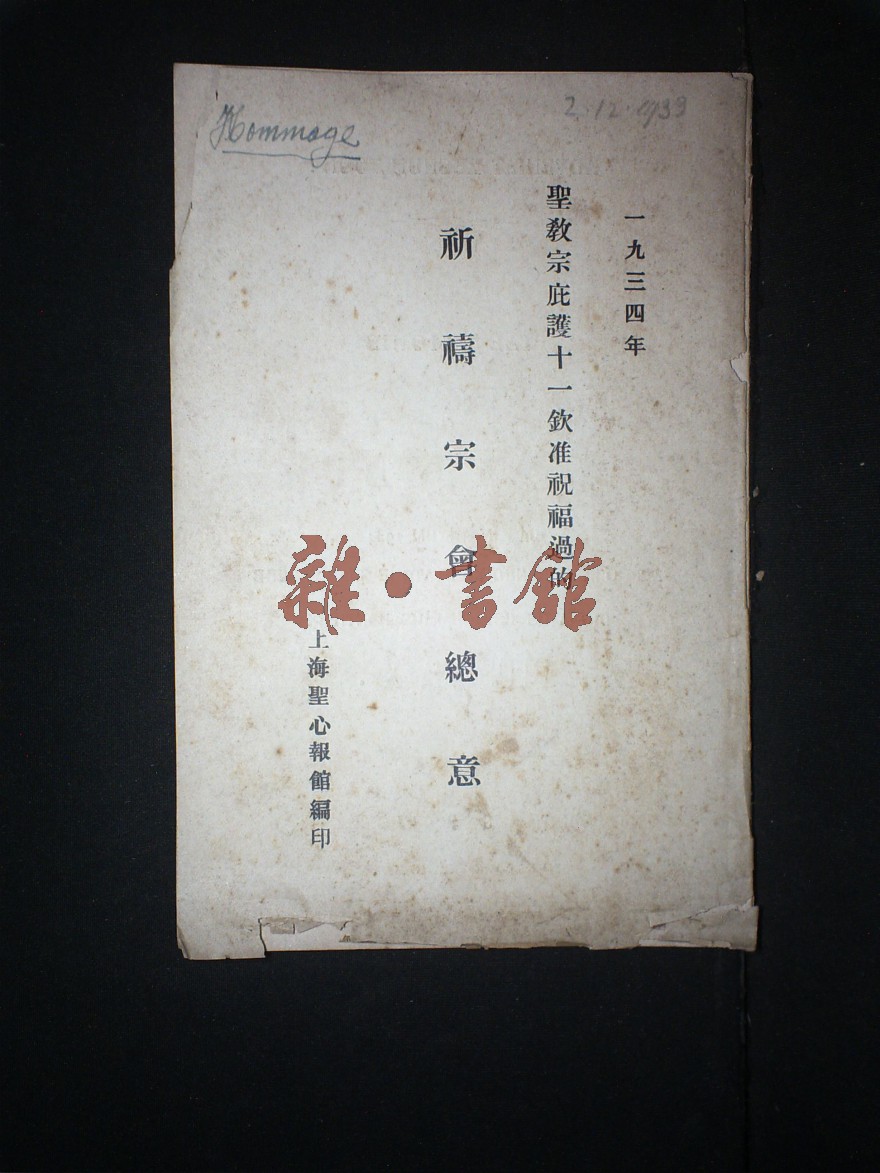 Hommage
2.12.1933
一九三四年
聖教宗庇護十一欽准祝福過的
祈禱宗會總意
上海聖心報館編印
雜·書館